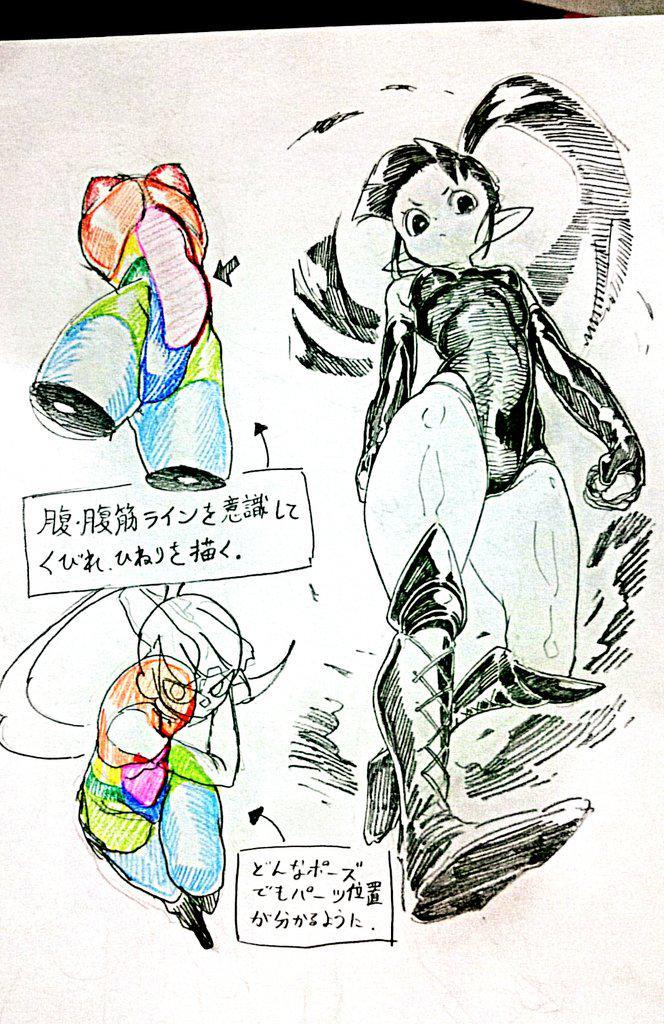 腹・腹筋ラインを意識して
くびれ、ひねりを描く。
どんなポーズ
でもパーツ位置
が分かるように.